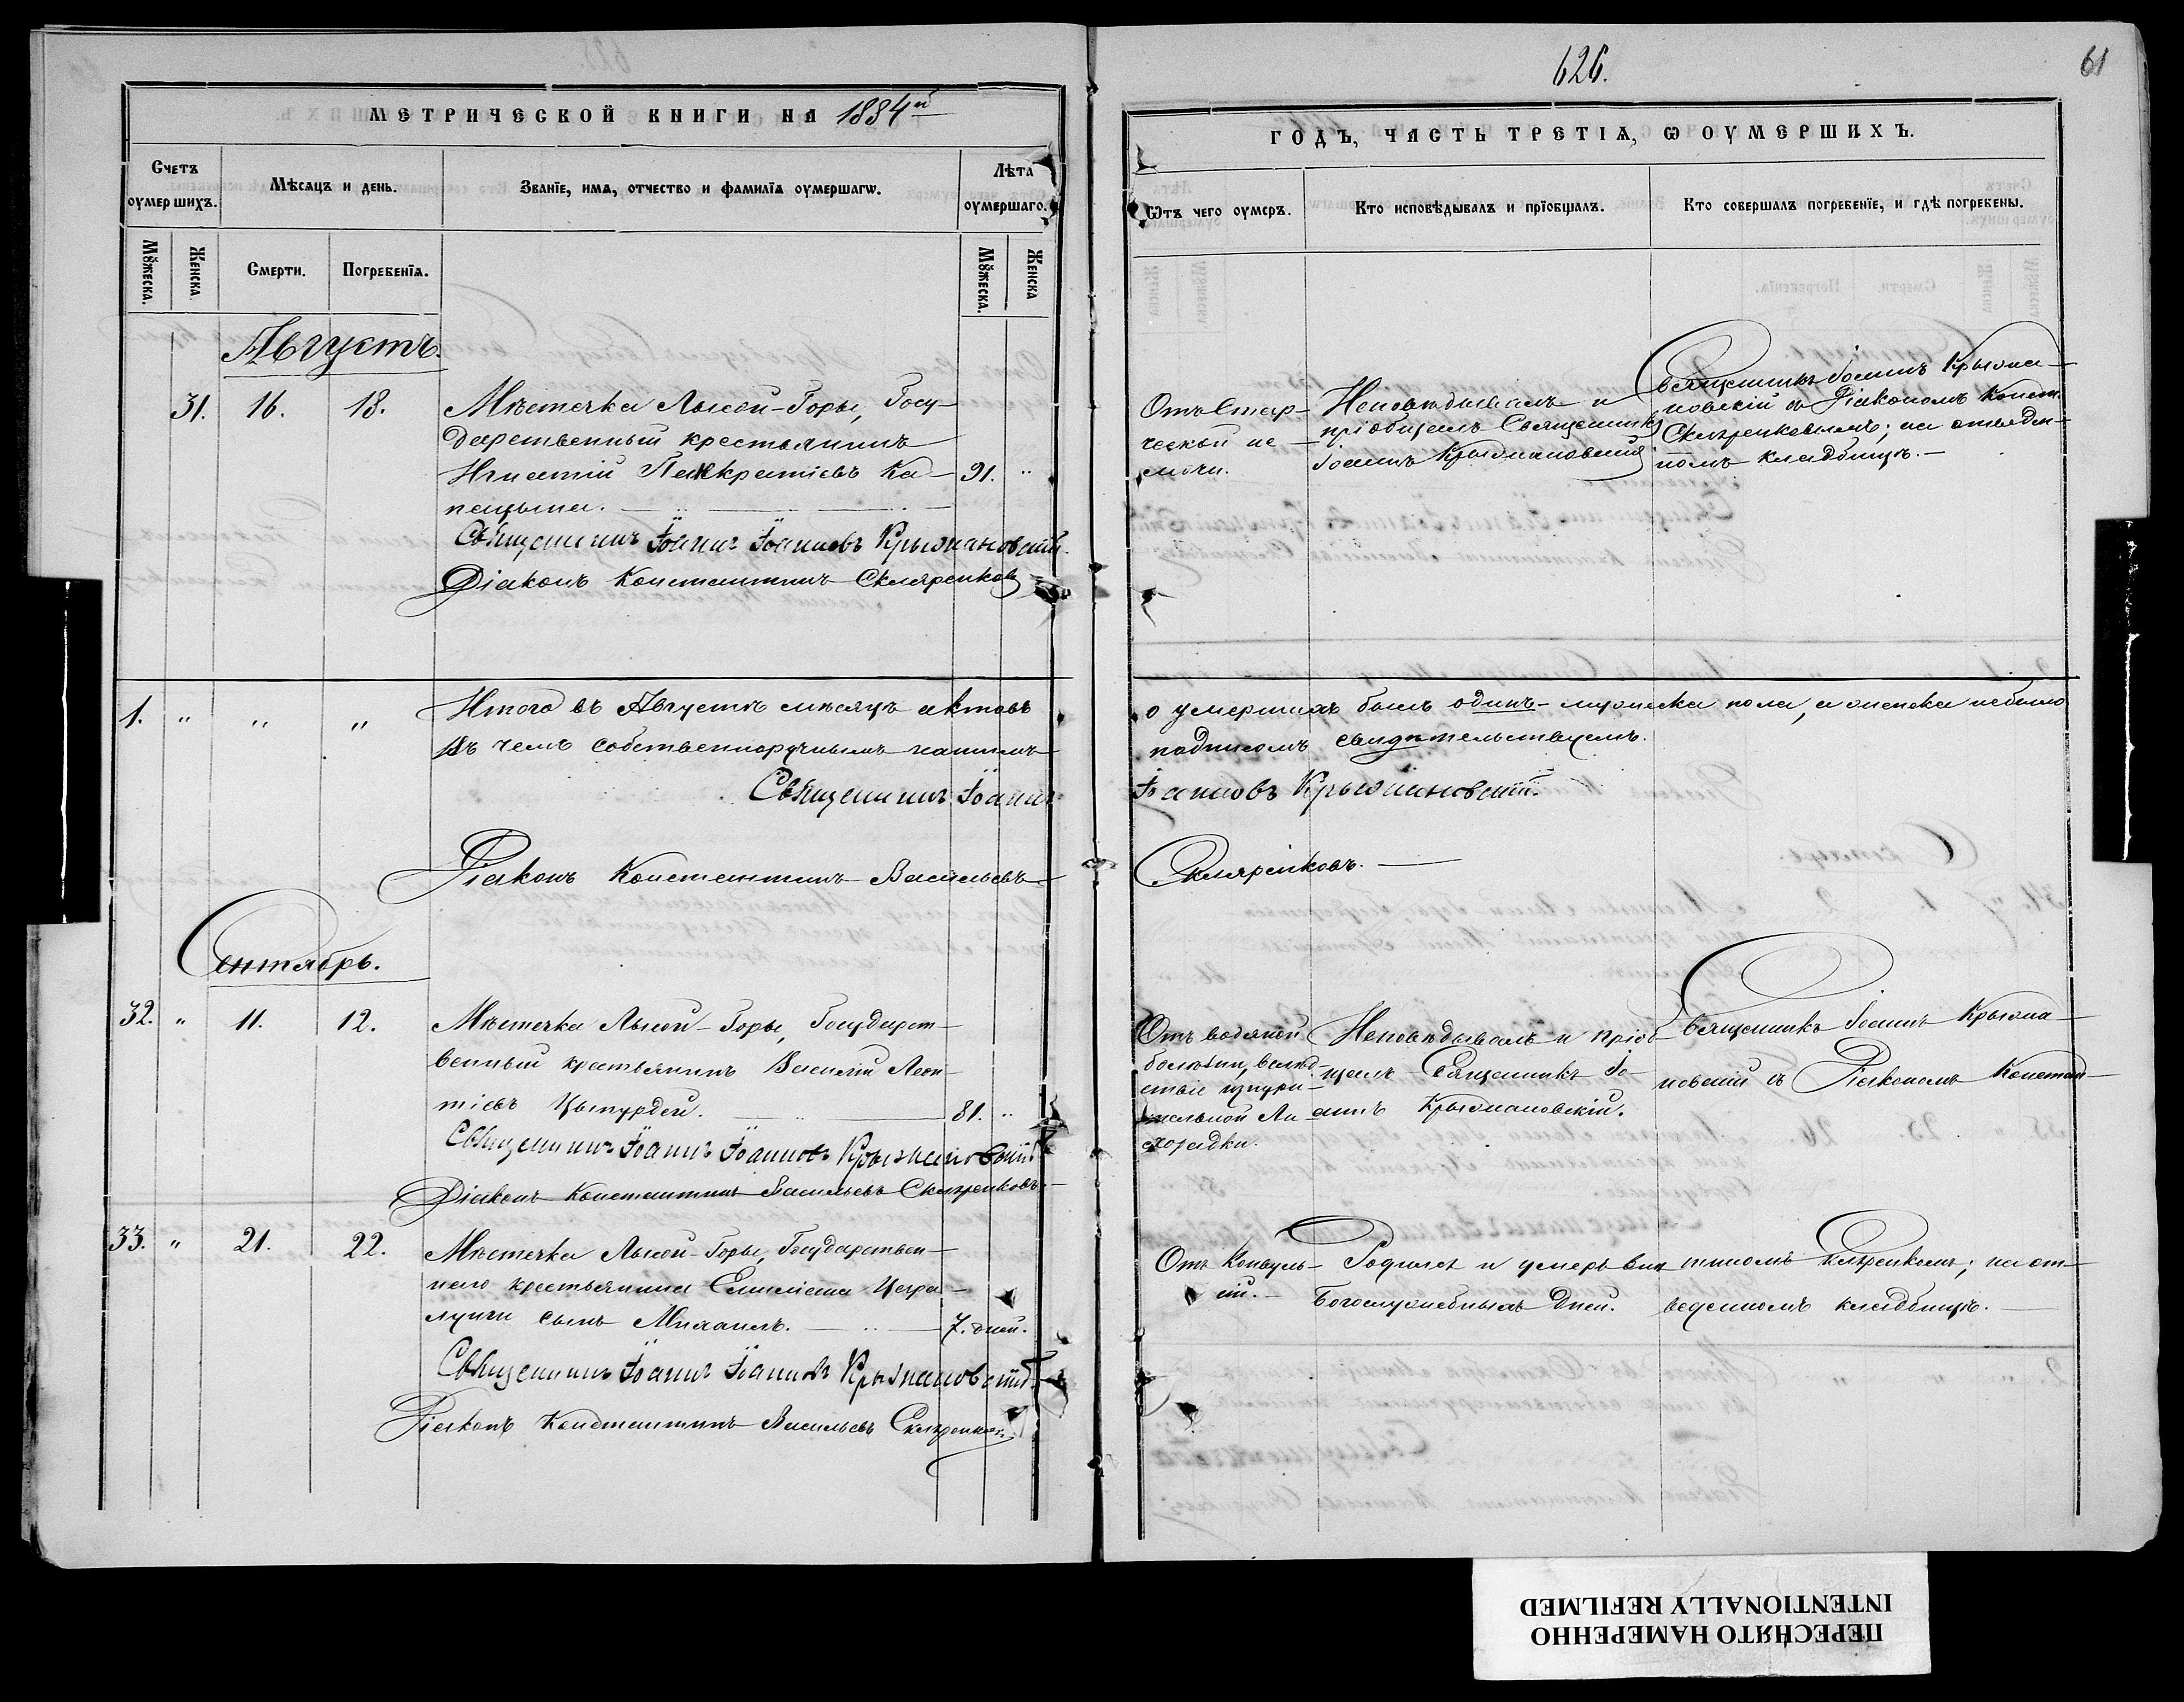 626.
61
МЕТРИЧЕСКОЙ КНИГИ НА 1884й
ГОДЪ, ЧАСТЬ ТРЕТІѦ, Ѡ ОУМЕРШИХЪ.
Счетъ оумершихъ.
Мѣсяцъ и день.
Званїе, имѧ, отчество и фамилїѧ оумершагѡ.
Лѣта оумершаго.
Ѿтъ чего оумеръ.
Кто исповѣдывалъ и прїобщалъ.
Кто совершалъ погребенїе, и гдѣ погребены.
Мꙋжеска.
Женска
Смерти.
Погребенїѧ.
Мꙋжеска.
Женска
Августъ.
31. 16. 18.
Мѣстечка Лысой-Горы, Госу-
дарственный крестьянинъ
Игнатій Панкратіевъ Ка- 91. "
пацына.
Священникъ Іоаннъ Іоанновъ Крыжановскій.
Діаконъ Константинъ Скляренковъ
Отъ Стар-
ческой не-
мочи.
Исповѣдывалъ и
пріобщалъ Священникъ
Іоаннъ Крыжановскій
Священникъ Іоаннъ Крыжа-
новскій съ Діакономъ Конст.
Скляренковымъ; на отведен-
номъ кладбищѣ.
1. " " "
Итого въ Августѣ мѣсяцѣ актовъ
о умершихъ былъ одинъ - мужеска пола, а женска небыло
въ чемъ собственноручнымъ нашимъ
подписомъ свидѣтельствуемъ.
Священникъ Іоаннъ
Іоанновъ Крыжановскій.
Діаконъ Константинъ Васильевъ
Скляренковъ.
Сентябрь.
32. " 11. 12.
Мѣстечка Лысой-Горы, Государст-
венный крестьянинъ Василій Леон-
тіевъ Цыпурдей. 81. "
Священникъ Іоаннъ Іоанновъ Крыжановскій
Діаконъ Константинъ Васильевъ Скляренковъ.
Отъ водяной
болѣзни, вслѣд-
ствіе изнури-
тельной Ли-
хорадки.
Исповѣдывалъ и пріоб-
щалъ Священникъ Іо-
аннъ Крыжановскій.
Священникъ Іоаннъ Крыжа-
новскій съ Діакономъ Констан-
33. " 21. 22.
Мѣстечка Лысой-Горы, Государствен-
наго крестьянина
сынъ Михаилъ. 7. дней.
Священникъ Іоаннъ Іоанновъ Крыжановскій
Діаконъ Константинъ Васильевъ Скляренковъ
Отъ Конвуль-
сій.
Родился и умеръ
Богослужебныхъ Дней.
тиномъ Скляренкомъ; на от-
веденномъ кладбищѣ.
ПЕРЕСНЯТО НАМЕРЕННО
INTENTIONALLY REFILMED